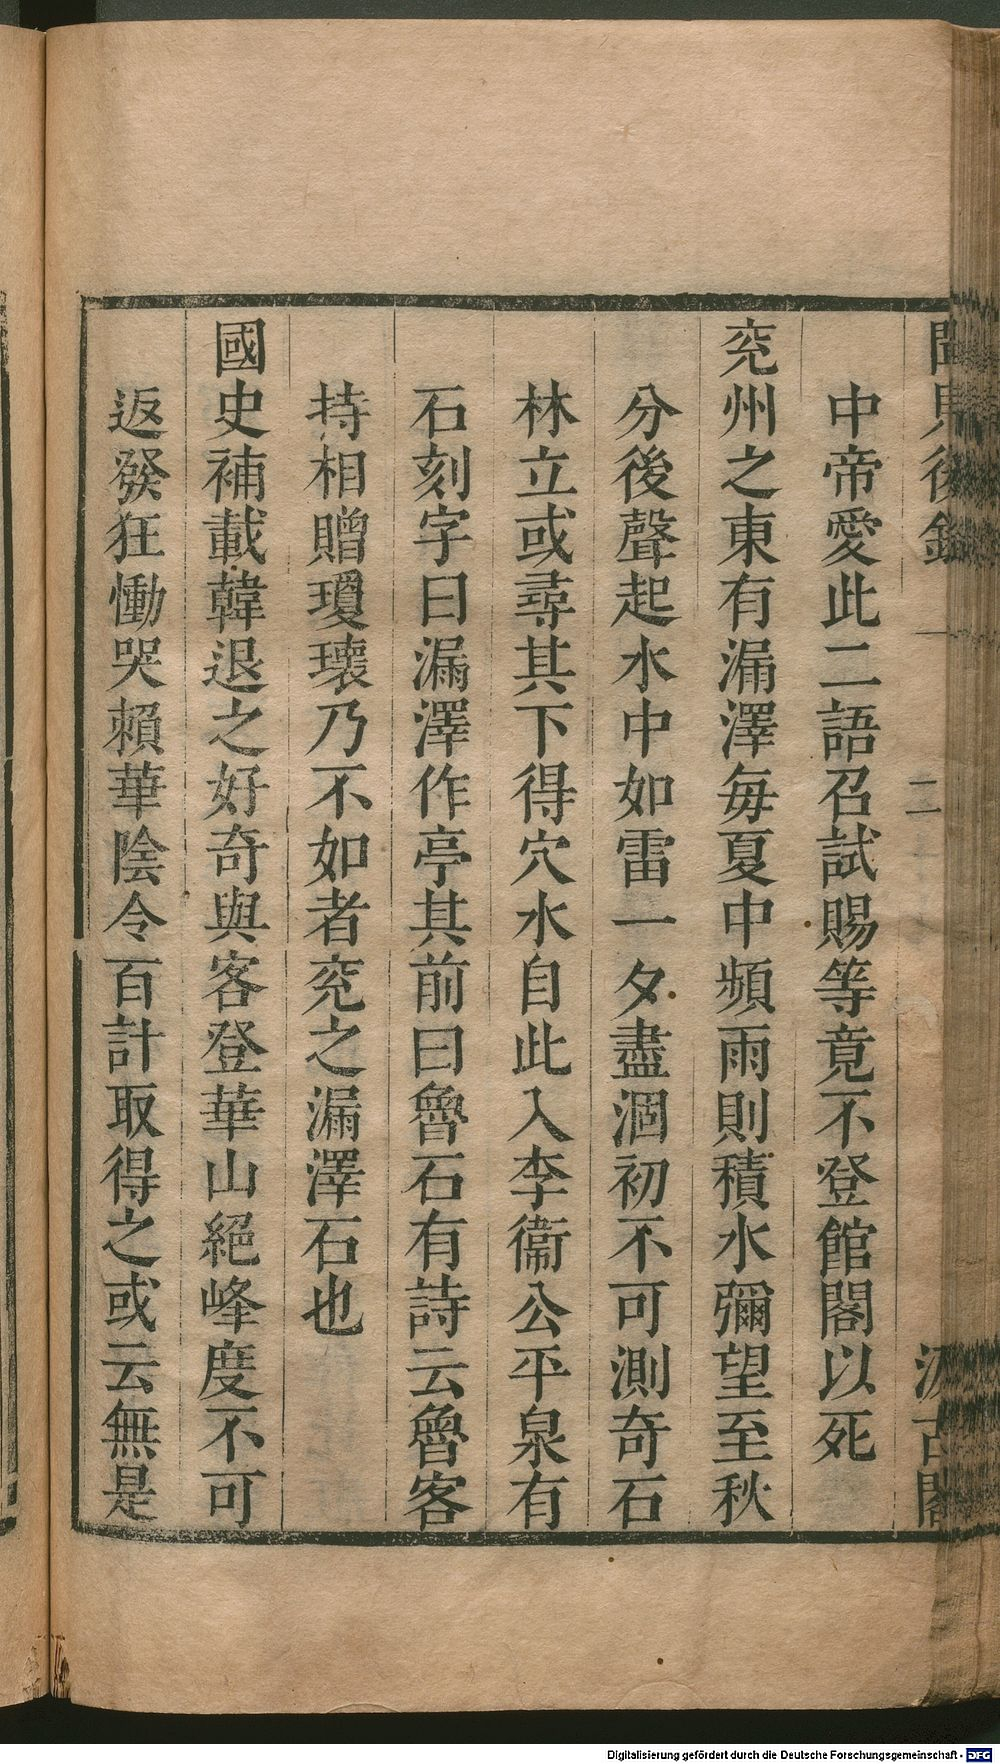 聞見後錄
二
汲古閣
中帝愛此二語召試賜等竟不登館閣以死
兖州之東有漏澤每夏中頻雨則積水彌望至秋
分後聲起水中如雷一夕盡涸初不可測奇石
林立或尋其下得穴水自此入李衞公平泉有
石刻字曰漏澤作亭其前曰魯石有詩云魯客
持相贈瓊瓌乃不如者兖之漏澤石也
國史補載韓退之好奇與客登華山絕峰度不可
返發狂慟哭賴華陰令百計取得之或云無是
Digitalisierung gefördert durch die Deutsche Forschungsgemeinschaft - DFG